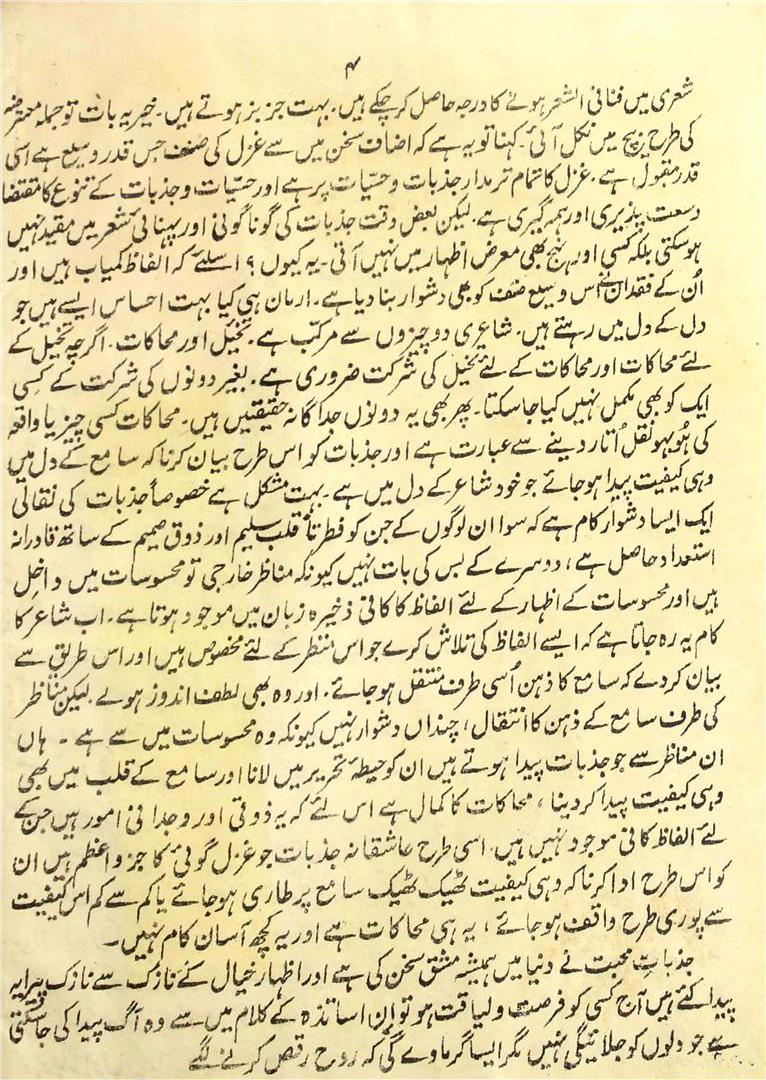 ۴
شعری میں فنانی الشعر ہونے کا درجہ حاصل کر چکے ہیں۔ بہت جز بز ہوتے ہیں۔ خیر یہ بات تو جملہ معترضہ
کی طرح بیچ میں نکل آئی۔ کہنا تو یہ ہے کہ اضاف سخن میں سے غزل کی صنف جس قدر وسیع ہے اسی
قدر مقبول ہے۔ غزل کا تمام تر مدار جذبات وحسیّات پر ہے اور حسیّات و جذبات کے تنوع کا مقتضا
وسعت پذیری اور ہمہ گیری ہے۔ لیکن بعض وقت جذبات کی گوناگونی اور پہنائی شعر میں مقید نہیں
ہو سکتی بلکہ کسی اور نہج بھی معرض اظہار میں نہیں آتی۔ یہ کیوں ؟ اسلئے کہ الفاظ کمیاب ہیں اور
اُن کے فقدان نے اس وسیع صنف کو بھی دشوار بنا دیا ہے۔ ارمان ہی کیا بہت احساس ایسے ہیں جو
دل کے دل میں رہتے ہیں۔ شاعری دو چیزوں سے مرکّب ہے۔ تخیّل اور محاکات۔ اگرچہ تخیل کے
لئے محاکات اور محاکات کے لئے تخیل کی شرکت ضروری ہے۔ بغیر دونوں کی شرکت کے کسِی
ایک کو بھی مکمل نہیں کیا جا سکتا۔ پھر بھی یہ دونوں جدا گانہ حقیقتیں ہیں۔ محاکات کسی چیز یا واقعہ
کی ہُو بہو نقل اُتار دینے سے عبارت ہے اور جذبات کو اس طرح بیان کرنا کہ سامع کے دل میں
وہی کیفیت پیدا ہو جائے جو خود شاعر کے دل میں ہے۔ بہت مشکل ہے خصوصاً جذبات کی نقالی
ایک ایسا دشوار کام ہے کہ سوا ان لوگوں کے جن کو فطرتاً قلب سلیم اور ذوق صمیم کے ساتھ قادرانہ
استعداد حاصل ہے، دوسرے کے بس کی بات نہیں کیونکہ مناظر خارجی تو محسوسات میں داخل
ہیں اور محسوسات کے اظہار کے لئے الفاظ کا کافی ذخیرہ زبان میں موجود ہوتا ہے۔ اب شاعر کا
کام یہ رہ جاتا ہے کہ ایسے الفاظ کی تلاش کرے جو اس منظر کے لئے مخصوص ہیں اور اس طریق سے
بیان کر دے کہ سامع کا ذہن اُسی طرف منتقل ہو جائے۔ اور وہ بھی لطف اندوز ہولے۔ لیکن مناظر
کی طرف سامع کے ذہن کا انتقال، چنداں دشوار نہیں کیونکہ وہ محسوسات میں سے ہے ۔ ہاں
ان مناظر سے جو جذبات پیدا ہوتے ہیں ان کو حیطۂ تحریر میں لانا اور سامع کے قلب میں بھی
وہی کیفیت پیدا کر دینا، محاکات کا کمال ہے اس لئے کہ یہ ذوقی اور وجدانی امور ہیں جن کے
لئے الفاظ کافی موجود نہیں ہیں۔ اسی طرح عاشقانہ جذبات جو غزل گوئی کا جز و اعظم ہیں ان
کو اس طرح ادا کرنا کہ وہی کیفیت ٹھیک ٹھیک سامع پر طاری ہو جائے یا کم سے کم اس کیفیت
سے پوری طرح واقف ہو جائے، یہ ہی محاکات ہے اور یہ کچھ آسان کام نہیں۔
جذباتِ محبت نے دنیا میں ہمیشہ مشق سخن کی ہے اور اظہار خیال کے نازک سے نازک پیرایہ
پیدا کئے ہیں آج کسی کو فرصت و لیاقت ہو تو ان اساتذہ کے کلام میں سے وہ آگ پیدا کی جا سکتی
ہے جو دلوں کو جلائیگی نہیں مگر ایسا گرما دے گی کہ روح رقص کرنے لگے